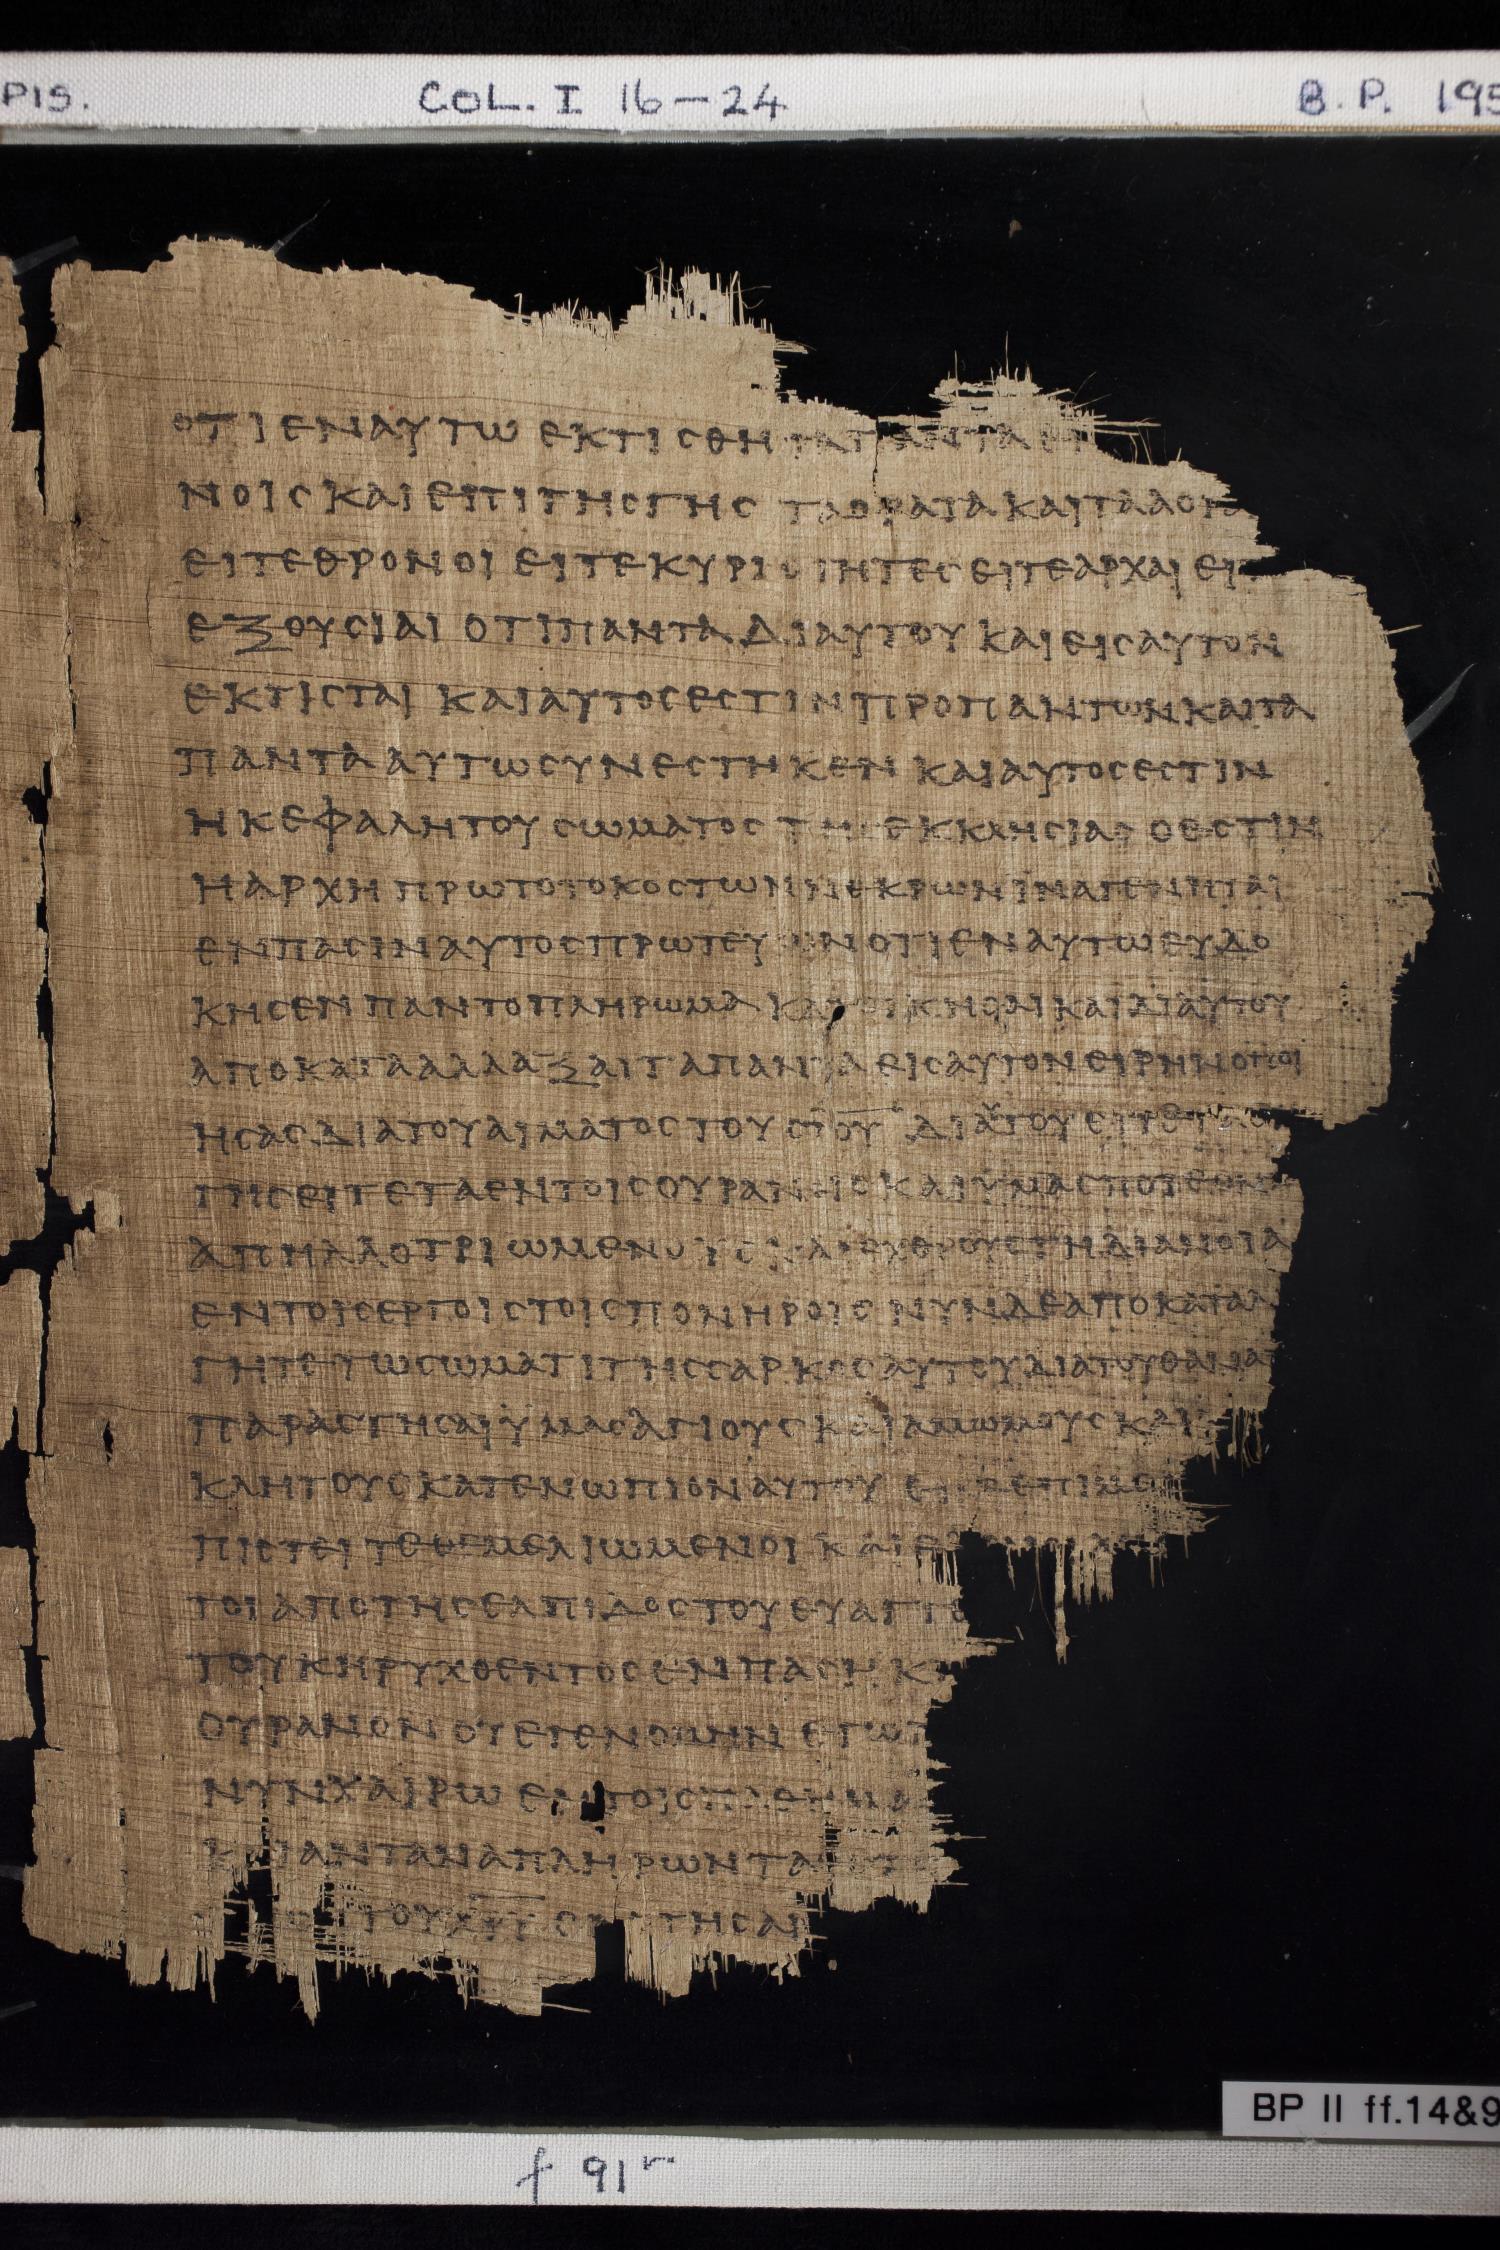 PIS. COL. I 16-24 B. P. 195
ΟΤΙ ΕΝ ΑΥΤΩ ΕΚΤΙCΘΗ ΤΑ ΠΑΝΤΑ
ΝΟΙC ΚΑΙ ΕΠΙ ΤΗC ΓΗC ΤΑ ΟΡΑΤΑ ΚΑΙ ΤΑ ΑΟΡΑ
ΕΙΤΕ ΘΡΟΝΟΙ ΕΙΤΕ ΚΥΡΙΟΤΗΤΕC ΕΙΤΕ ΑΡΧΑΙ ΕΙ
ΕΞΟΥCΙΑΙ ΟΤΙ ΠΑΝΤΑ ΔΙ ΑΥΤΟΥ ΚΑΙ ΕΙC ΑΥΤΟΝ
ΕΚΤΙCΤΑΙ ΚΑΙ ΑΥΤΟC ΕCΤΙΝ ΠΡΟ ΠΑΝΤΩΝ ΚΑΙ ΤΑ
ΠΑΝΤΑ ΑΥΤΩ CΥΝΕCΤΗΚΕΝ ΚΑΙ ΑΥΤΟC ΕCΤΙΝ
Η ΚΕΦΑΛΗ ΤΟΥ CΩΜΑΤΟC ΤΗC ΕΚΚΛΗCΙΑC Ο ΕCΤΙΝ
Η ΑΡΧΗ ΠΡΩΤΟΤΟΚΟC ΤΩΝ ΝΕΚΡΩΝ ΙΝΑ ΓΕΝΗΤΑΙ
ΕΝ ΠΑCΙΝ ΑΥΤΟC ΠΡΩΤΕΥΩΝ ΟΤΙ ΕΝ ΑΥΤΩ ΕΥΔΟ
ΚΗCΕΝ ΠΑΝ ΤΟ ΠΛΗΡΩΜΑ ΚΑΤΟΙΚΗCΑΙ ΚΑΙ ΔΙ ΑΥΤΟΥ
ΑΠΟΚΑΤΑΛΛΑΞΑΙ ΤΑ ΠΑΝΤΑ ΕΙC ΑΥΤΟΝ ΕΙΡΗΝΟΠΟΙ
ΗCΑC ΔΙΑ ΤΟΥ ΑΙΜΑΤΟC ΤΟΥ CΤΟΥ ΔΙ ΑΥΤΟΥ ΕΙΤΕ
ΓΗC ΕΙΤΕ ΤΑ ΕΝ ΤΟΙC ΟΥΡΑΝΟΙC ΚΑΙ ΥΜΑC ΠΟΤΕ ΟΝΤΑ
ΑΠΗΛΛΟΤΡΙΩΜΕΝΟΥC ΚΑΙ ΕΧΘΡΟΥC ΤΗ ΔΙΑΝΟΙΑ
ΕΝ ΤΟΙC ΕΡΓΟΙC ΤΟΙC ΠΟΝΗΡΟΙC ΝΥΝ ΔΕ ΑΠΟΚΑΤΑΛ
ΓΗΤΕ ΕΝ ΤΩ CΩΜΑΤΙ ΤΗC CΑΡΚΟC ΑΥΤΟΥ ΔΙΑ ΤΟΥ ΘΑΝΑΤ
ΠΑΡΑCΤΗCΑΙ ΥΜΑC ΑΓΙΟΥC ΚΑΙ ΑΜΩΜΟΥC ΚΑΙ
ΚΛΗΤΟΥC ΚΑΤΕΝΩΠΙΟΝ ΑΥΤΟΥ ΕΙ ΓΕ ΕΠΙΜΕ
ΠΙCΤΕΙ ΤΕΘΕΜΕΛΙΩΜΕΝΟΙ ΚΑΙ
ΤΟΙ ΑΠΟ ΤΗC ΕΛΠΙΔΟC ΤΟΥ ΕΥΑΓΓ
ΤΟΥ ΚΗΡΥΧΘΕΝΤΟC ΕΝ ΠΑCΗ Κ
ΟΥΡΑΝΟΝ ΟΥ ΕΓΕΝΟΜΗΝ ΕΓΩ
ΝΥΝ ΧΑΙΡΩ ΕΝ ΤΟΙC ΠΑΘΗΜΑ
ΚΑΙ ΑΝΤΑΝΑΠΛΗΡΩ
ΤΟΥ ΧΡΥ ΤΗ CΑΡ
BP II ff.14&9
f 91r